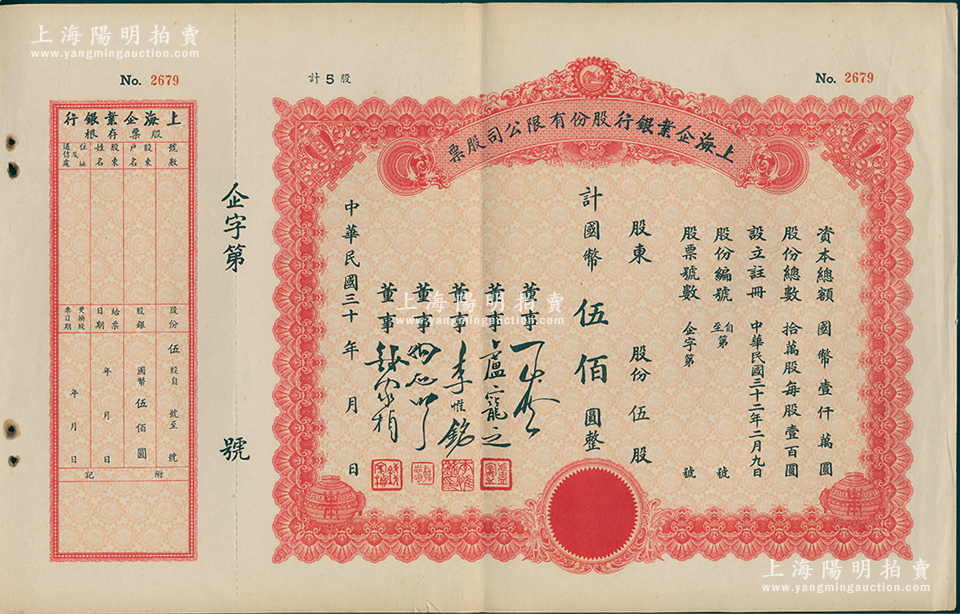 上海陽明拍賣
www.yangmingauction.com
No. 2679
計5股
No. 2679
上海企業銀行股份有限公司股票
資本總額 國幣壹仟萬圓
股份總數 拾萬股每股壹百圓
設立註冊 中華民國三十二年二月九日
股份編號 自第 至 號
股票號數 企字第 號
股東 股份伍股
計國幣伍佰圓整
董事
董事 盧寵之
董事 李惟銘
董事
董事
中華民國三十 年 月 日
企字第 號
上海企業銀行
股票存根
號數
股東戶名
股東姓名
住址及通信處
股份 伍股自 號至 號
股銀 國幣伍佰圓
給票日期 年 月 日
更換股票日期 年 月 日
附記
上海陽明拍賣
www.yangmingauction.com
上海陽明拍賣
www.yangmingauction.com